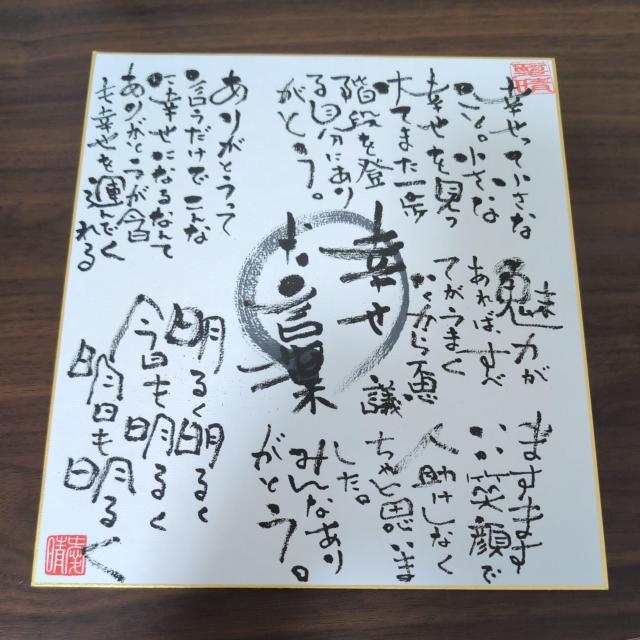 幸せって小さな
こと。小さな
幸せを見つ
けてまた一歩
階段を登
る自分にあり
がとう。
ありがとうって
言うだけでこんな
に幸せになるなんて
ありがとうが
も幸せを運んでく
れる
幸せ
言葉
魅力が
あれば、すべ
てがうまく
いくから不思
議
ますます
いい笑顔で
人助けしなく
ちゃと思いま
した。
みんなあり
がとう。
明るく明るく
今日も明るく
明日も明るく